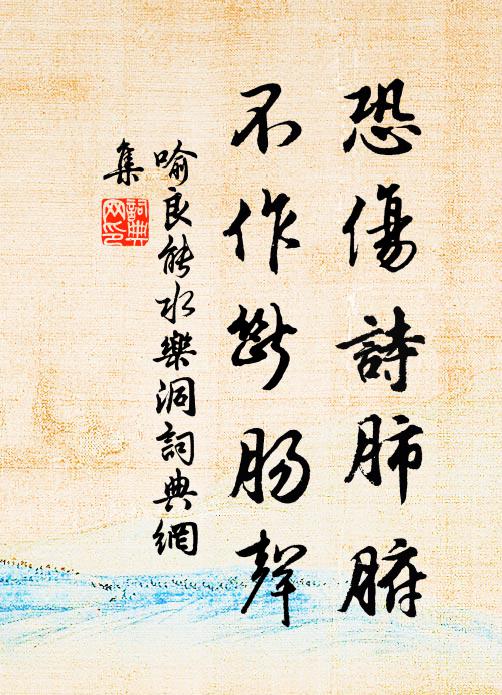 恐傷詩肺腑
不作斷腸聲
喻良能水樂洞詞典網
集
詞典
网印